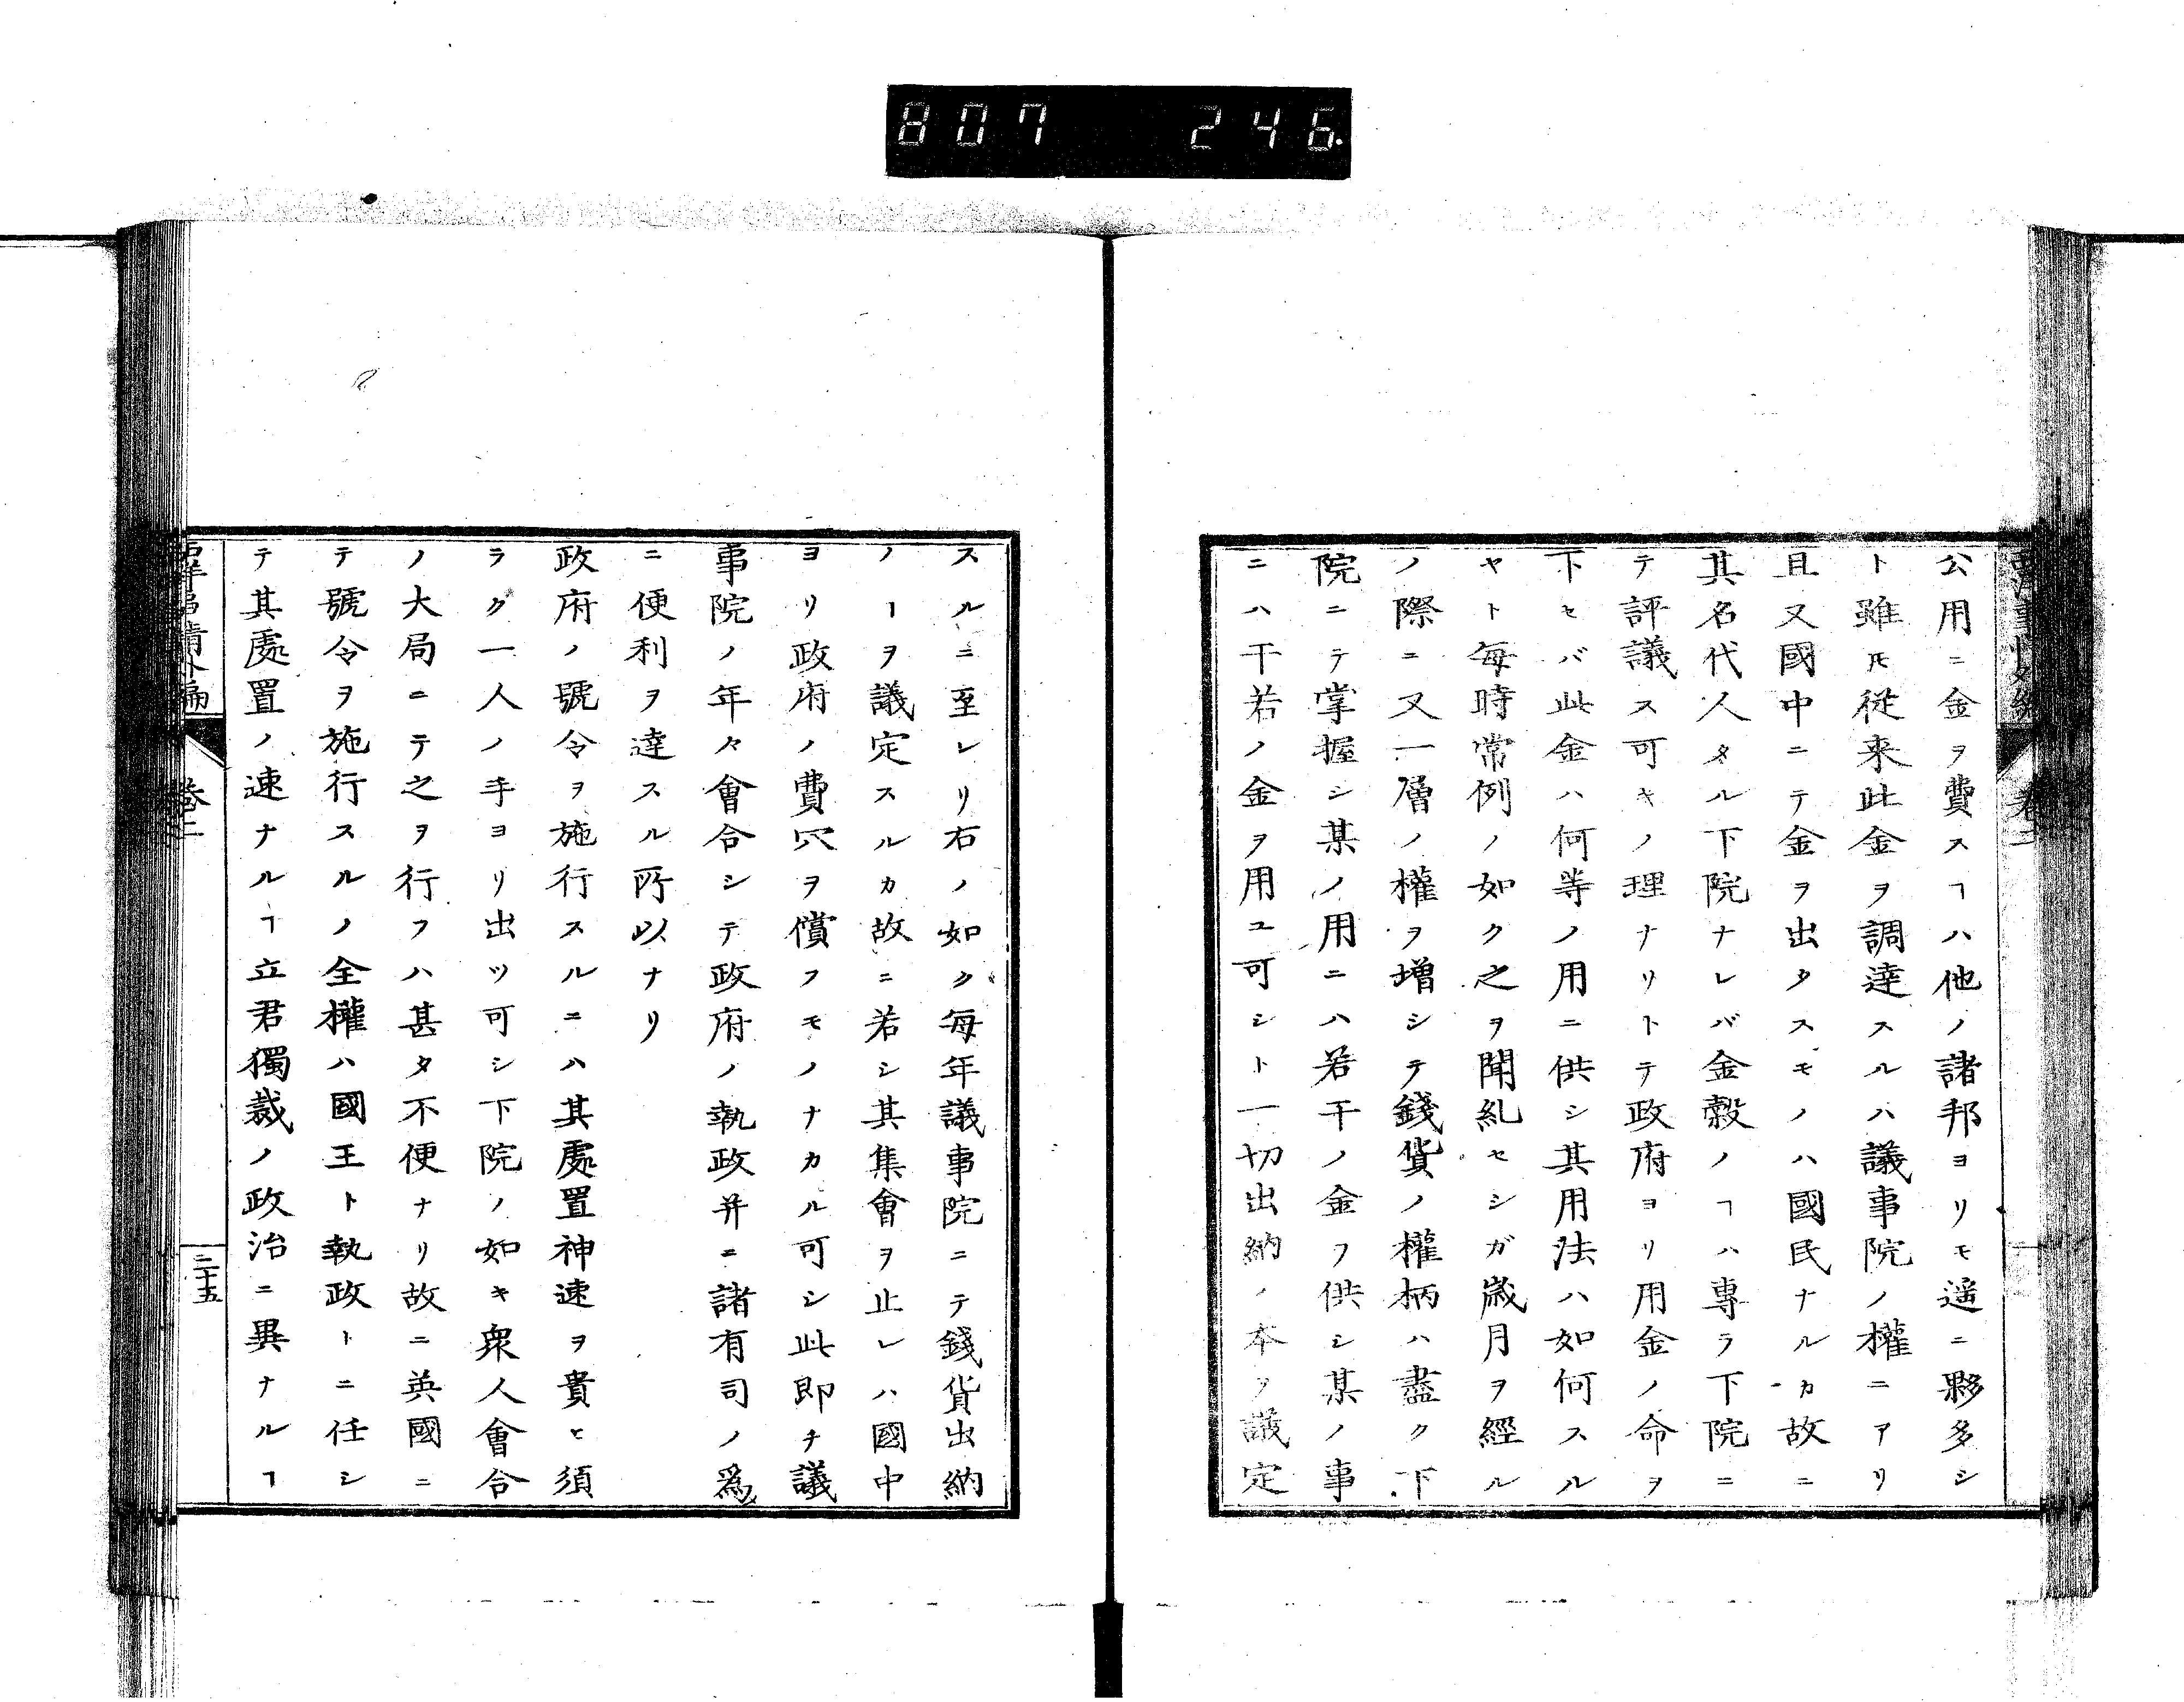 807 246.
西洋事情外編 巻二
公用ニ金ヲ費スヿハ他ノ諸邦ヨリモ遥ニ夥多シ
ト雖𪜈従来此金ヲ調達スルハ議事院ノ權ニアリ
且又國中ニテ金ヲ出タスモノハ國民ナルカ故ニ
其名代人タル下院ナレバ金穀ノヿハ專ラ下院ニ
テ評議ス可キノ理ナリトテ政府ヨリ用金ノ命ヲ
下セバ此金ハ何等ノ用ニ供シ其用法ハ如何スル
ヤト毎時常例ノ如ク之ヲ聞糺セシガ歳月ヲ經ル
ノ際ニ又一層ノ權ヲ増シテ錢貨ノ權柄ハ盡ク下
院ニテ掌握シ某ノ用ニハ若干ノ金ヲ供シ某ノ事
ニハ干若ノ金ヲ用ユ可シト一切出納ノ本ヲ議定
スルニ至レリ右ノ如ク毎年議事院ニテ錢貨出納
ノヿヲ議定スルカ故ニ若シ其集會ヲ止レハ國中
ヨリ政府ノ費穴ヲ償フモノナカル可シ此即チ議
事院ノ年々會合シテ政府ノ執政并ニ諸有司ノ爲
ニ便利ヲ達スル所以ナリ
政府ノ號令ヲ施行スルニハ其處置神速ヲ貴ヒ須
ラク一人ノ手ヨリ出ツ可シ下院ノ如キ衆人會合
ノ大局ニテ之ヲ行フハ甚タ不便ナリ故ニ英國ニ
テ號令ヲ施行スルノ全權ハ國王ト執政トニ任シ
テ其處置ノ速ナルヿ立君獨裁ノ政治ニ異ナルヿ
西洋事情外編 巻二 二十五